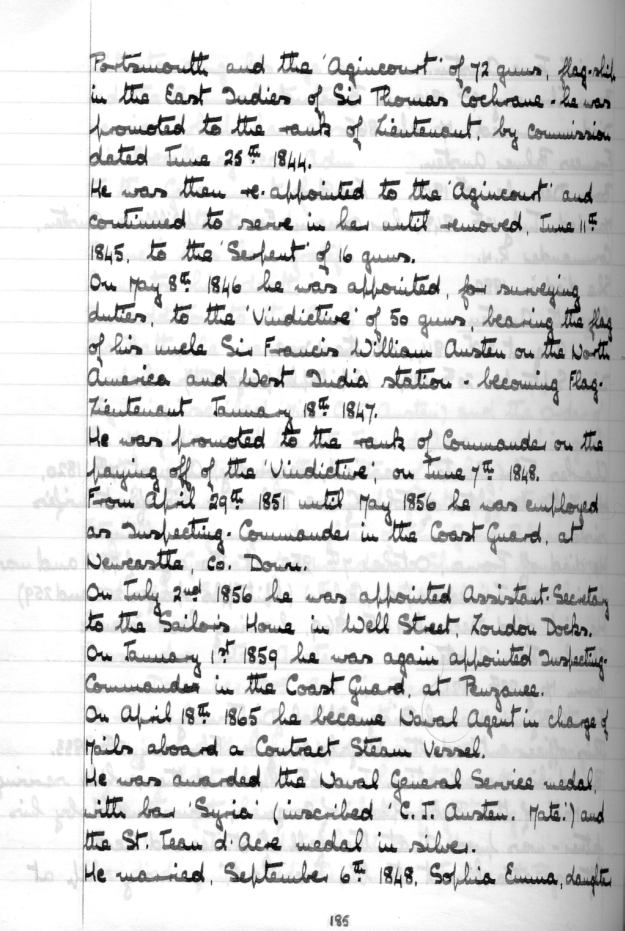 Portsmouth and the 'Agincourt' of 72 guns, flag-ship
in the East Indies of Sir Thomas Cochrane - he was
promoted to the rank of Lieutenant, by commission
dated June 25th 1844.
He was then re-appointed to the 'Agincourt' and
continued to serve in her until removed, June 11th
1845, to the 'Serpent' of 16 guns.
On May 8th 1846 he was appointed, for surveying
duties, to the 'Vindictive' of 50 guns, bearing the flag
of his uncle Sir Francis William Austen on the North
America and West India station - becoming Flag-
Lieutenant January 18th 1847.
He was promoted to the rank of Commander on the
paying off of the 'Vindictive', on June 7th 1848.
From April 29th 1851 until May 1856 he was employed
as Inspecting-Commander in the Coast Guard, at
Newcastle, Co. Down.
On July 2nd 1856 he was appointed Assistant-Secretary
to the Sailors Home in Well Street, London Docks.
On January 1st 1859 he was again appointed Inspecting-
Commander in the Coast Guard, at Penzance.
On April 18th 1865 he became Naval Agent in charge of
Mails aboard a Contract Steam Vessel.
He was awarded the Naval General Service medal,
with bar 'Syria' (inscribed 'C. J. Austen. Mate.') and
the St. Jean d'Acre medal in silver.
He married, September 6th 1848, Sophia Emma, daughter
185